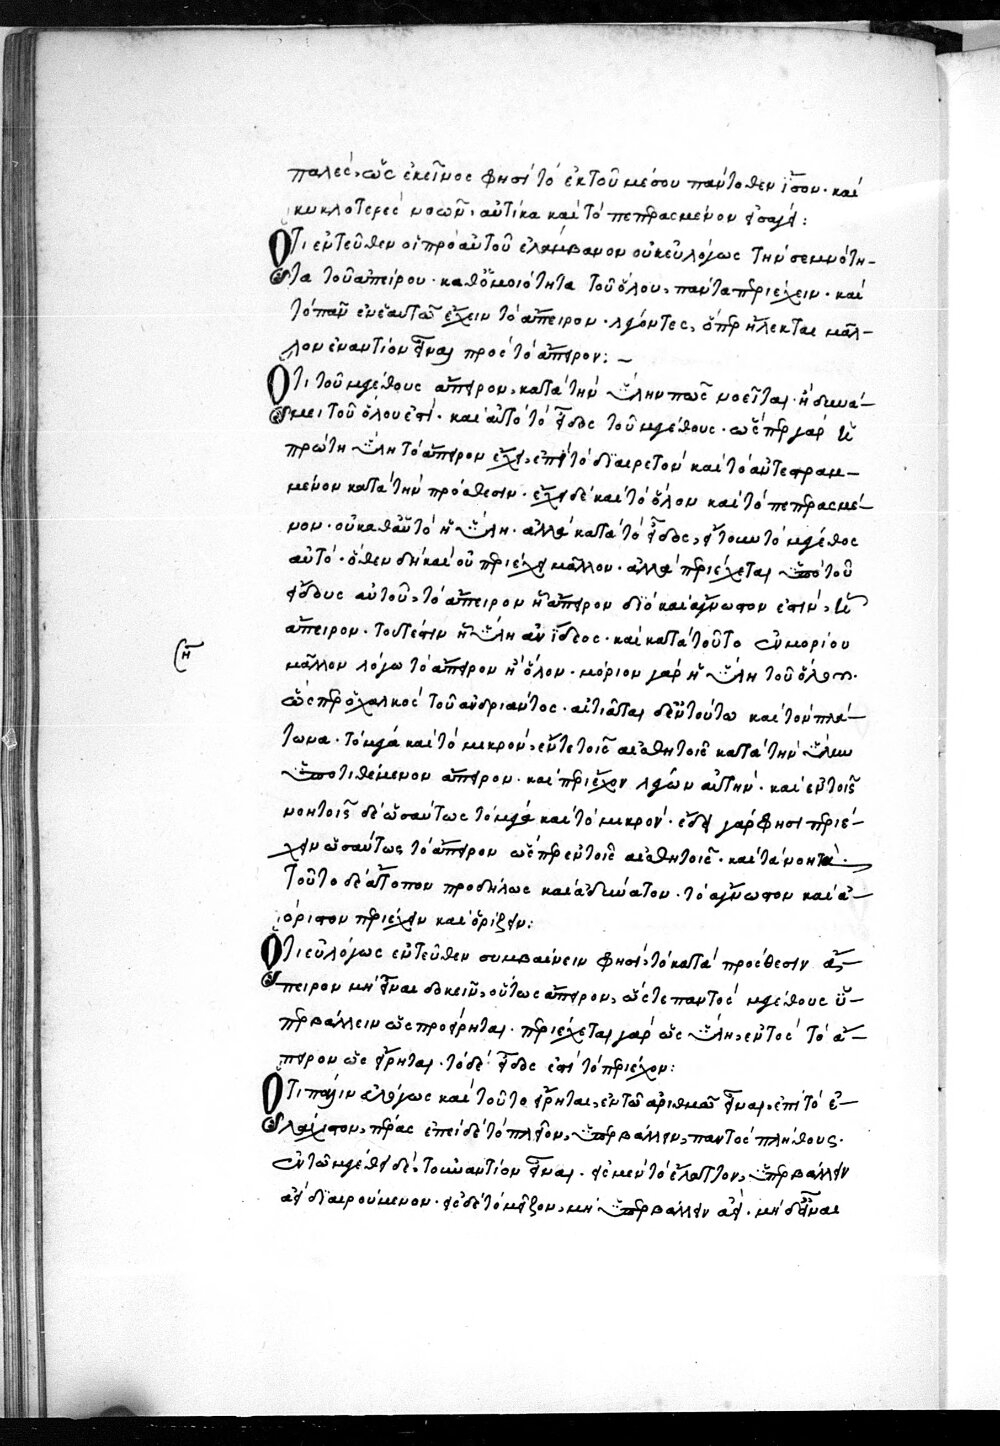 παλές, ὡς ἐκεῖνος φησὶ τὸ ἐκ τοῦ μέσου πάντοθεν ἴσον· καὶ
κυκλοτερὲς νοῶν· αὐτίκα καὶ τὸ πεπερασμένον εἰσάγει:
Ὅτι ἐντεῦθεν οἱ πρὸ αὐτοῦ ἐλάμβανον οὐκ εὐλόγως τὴν σεμνότη-
τα τοῦ ἀπείρου· καθ' ὁμοιότητα τοῦ ὅλου, πάντα περιέχειν· καὶ
τὸ πᾶν ἐν ἑαυτῶ ἔχειν τὸ ἄπειρον· λέγοντες, ὅπερ ἤλεκται μᾶλ-
λον ἐναντίον εἶναι πρὸς τὸ ἄπειρον: ~
Ὅτι τοῦ μεγέθους ἄπειρον, κατὰ τὴν ὕλην πως νοεῖται· ἡ δυνά-
μει τοῦ ὅλου ἐστί· καὶ αὐτὸ τὸ εἶδος τοῦ μεγέθους· ὥσπερ γὰρ ἡ
πρώτη ὕλη τὸ ἄπειρον ἔχει, ἐπὶ τὸ διαιρετὸν καὶ τὸ ἀντεστραμ-
μένον κατὰ τὴν πρόσθεσιν· ἔχει δὲ καὶ τὸ ὅλον καὶ τὸ πεπερασμέ-
νον· οὐ καθ' αὑτὸ ἡ ὕλη· ἀλλὰ κατὰ τὸ εἶδος, ἤτοι τὸ μέγεθος
αὐτό· ὅθεν δὴ καὶ οὐ περιέχει μᾶλλον· ἀλλὰ περιέχεται ὑπὸ τοῦ
εἴδους αὐτοῦ, τὸ ἄπειρον ἢ ἄπειρον διὸ καὶ ἄγνωστον ἐστίν, ἡ
ἄπειρον· τουτέστιν ἡ ὕλη ἀνείδεος· καὶ κατὰ τοῦτο ἐν μορίου
μᾶλλον λόγω τὸ ἄπειρον ἢ ὅλου· μόριον γὰρ ἡ ὕλη τοῦ ὅλου·
ὥσπερ ὁ χαλκὸς τοῦ ἀνδριάντος· αἰτιᾶται δ' ἐν τούτω καὶ τὸν πλά-
τωνα· τὸ μέγα καὶ τὸ μικρόν, ἔν τε τοῖς αἰσθητοῖς κατὰ τὴν ὕλην
ὑποτιθέμενον ἄπειρον· καὶ περιέχον λέγων αὐτήν· καὶ ἐν τοῖς
νοητοῖς δὲ ὡσαύτως τὸ μέγα καὶ τὸ μικρόν· ἔδει γὰρ φησὶ περιέ-
χειν ὡσαύτως τὸ ἄπειρον ὥσπερ ἐν τοῖς αἰσθητοῖς· καὶ τὰ νοητά·
Τοῦτο δὲ ἄτοπον προδήλως καὶ ἀδύνατον· τὸ ἄγνωστον καὶ ἀ-
όριστον περιέχειν καὶ ὁρίζειν:
Ὅτι εὐλόγως ἐντεῦθεν συμβαίνειν φησί, τὸ κατὰ πρόσθεσιν ἄ-
πειρον μὴ εἶναι δοκεῖν, οὕτως ἄπειρον, ὥστε παντὸς μεγέθους ὑ-
περβάλλειν ὡς προείρηται· περιέχεται γὰρ ὡς ὕλη, ἐντὸς τὸ ἄ-
πειρον ὡς εἴρηται· τὸ δὲ εἶδος ἐστὶ τὸ περιέχον:
Ὅτι πάλιν εὐλόγως καὶ τοῦτο εἴρηται, ἐν τῶ ἀριθμῶ εἶναι, ἐπὶ τὸ ἐ-
λάχιστον, πέρας ἐπεὶ δὲ τὸ πλεῖον, ὑπερβάλλειν, παντὸς πλήθους·
ἐν τῶ μεγέθει δέ, τοὐναντίον εἶναι· εἰς μὲν τὸ ἔλαττον, ὑπερβάλλειν
ἀεὶ διαιρούμενον· εἰς δὲ τὸ μεῖζον, μὴ ὑπερβάλλειν ἀεί· μὴ δ' εἶναι